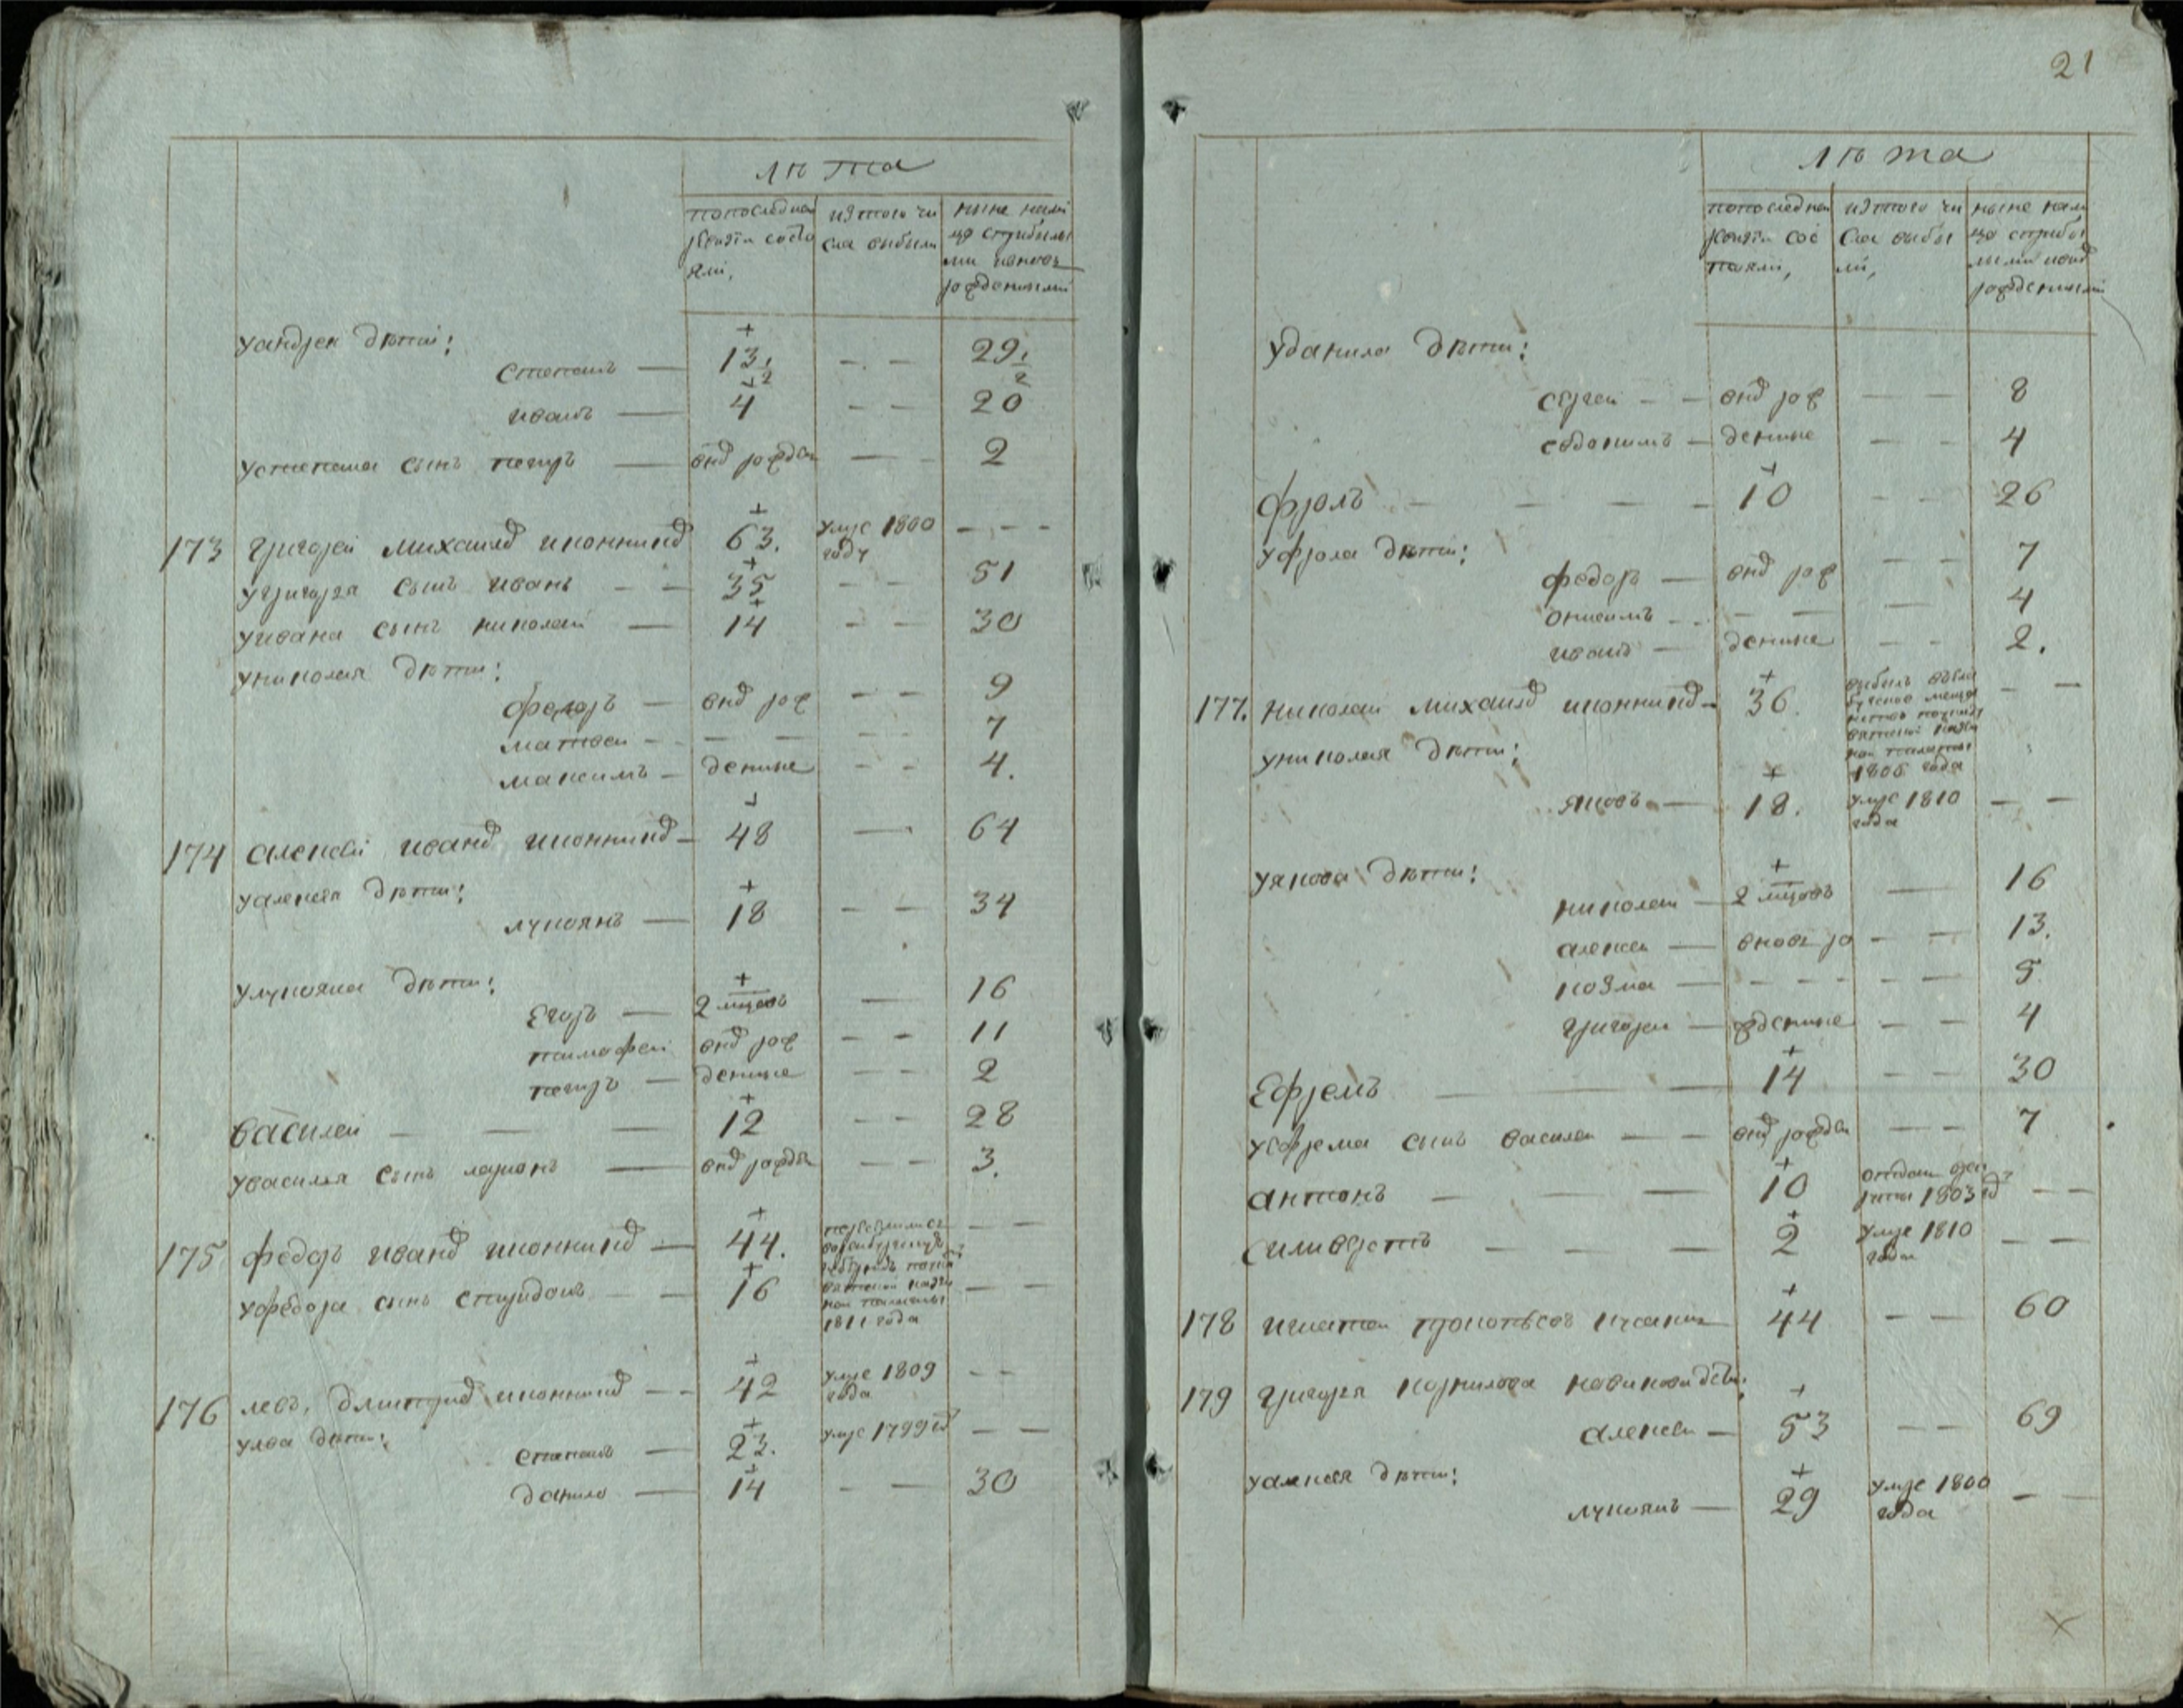 лѣта
попоследней ревизіи состояли,
изтого числа выбыли
ныне налицо
рожденными
уандрея дѣти:
степанъ — 13 — — 29
иванъ — 4 — — 20
устепана сынъ петръ — внов рожден — — 2
173 григорей михаилов иконников 63. умре 1800 году — — —
угригорья сынъ иванъ — — 35 — — 51
уивана сынъ николай — 14 — — 30
униколая дѣти:
федоръ — внов рож — — 9
матвей — — — — — 7
максимъ — денные — — 4.
174 алексей иванов иконников — 48 — 64
уалексея дѣти:
лукоянъ — 18 — — 34
улукояна дѣти:
Егоръ — 2 мцовъ — 16
тимофей внов рож — — 11
петръ — денные — — 2
василей — — — 12 — — 28
увасилья сынъ ларионъ — внов рожден — — 3.
175 федоръ иванов иконников — 44. — —
уфедора сынъ спиридонъ — — 16 казенной палаты 1811 года — —
176 левъ дмитриев иконников — — 42 умре 1809 года — —
улва дѣти:
степанъ — 23. умре 1799 го — —
данило — 14 — — 30
21
лѣта
попоследней ревизіи состояли,
изтого числа выбыли,
ныне налицо
рожденными
уданила дѣти:
сергей — — внов рож — — 8
евдокимъ — денные — — 4
фролъ — — — — 10 — — 26
уфрола дѣти:
федоръ — внов рож — — 7
онисимъ — — — — 4
иванъ — денные — — 2.
177. николай михаилов иконников — 36. выбылъ казенной палаты 1806 года — —
униколая дѣти:
яковъ — 18. умре 1810 года — —
уякова дѣти:
николай — 2 мцовъ — 16
алексей — вновь ро — — 13.
козма — — — — — — 5
григорей — жденные — — 4
Ефремъ — — 14 — — 30
уефрема сынъ василей — — внов рожден — — 7
антонъ — — — 10 отдан 1803 го — —
силиверстъ — — — 2 умре 1810 года — —
178 игнатей прокопьевъ 44 — — 60
179 григорья корнилова новикова дѣти:
алексей — 53 — — 69
уалексея дѣти:
лукоянъ — 29 умре 1800 года — —